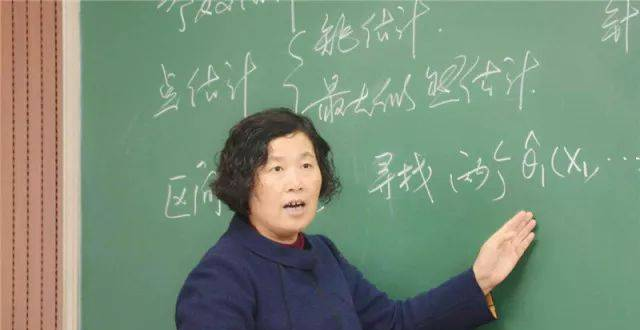 矩估计.
针
点估计 { 最大似然估计.
区间 寻找两个 θ̂₁(X₁, …